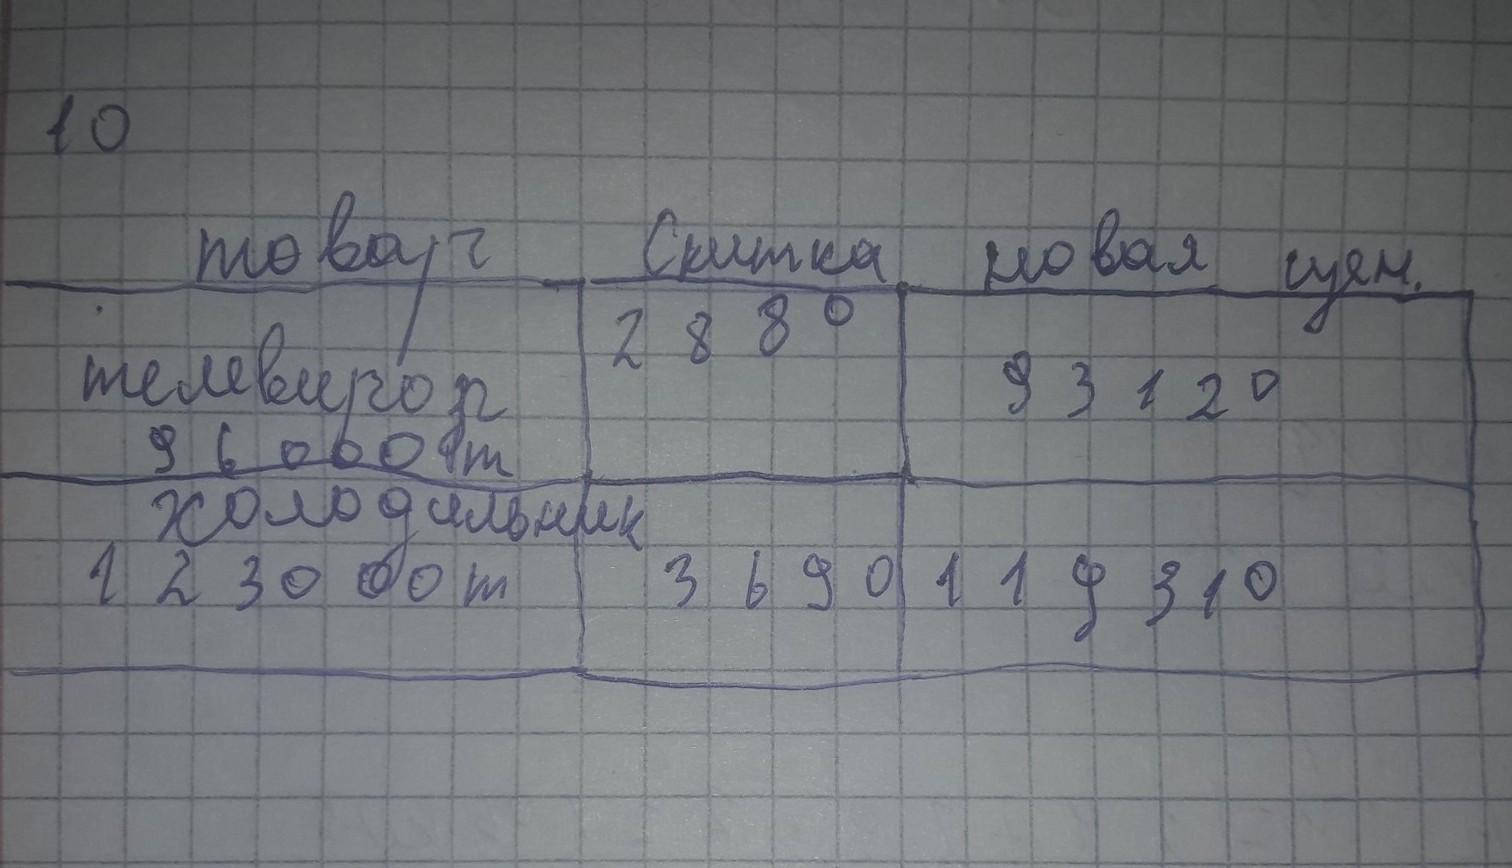 10
товар Скитка новая цен.
телевизор 2880 93120
96000т
холодильник
123000т 3690 119310